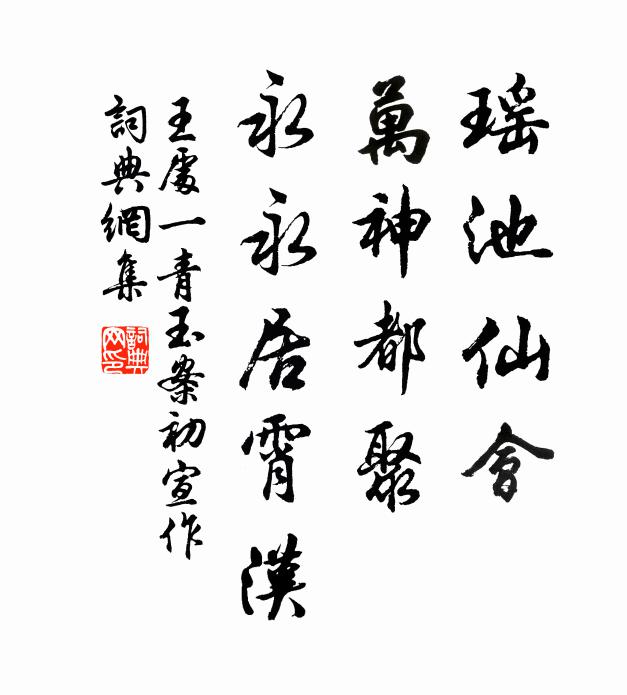 瑶池仙會
萬神都聚
永永居霄漢
王處一青玉案初宣作
詞典網集
詞典网印